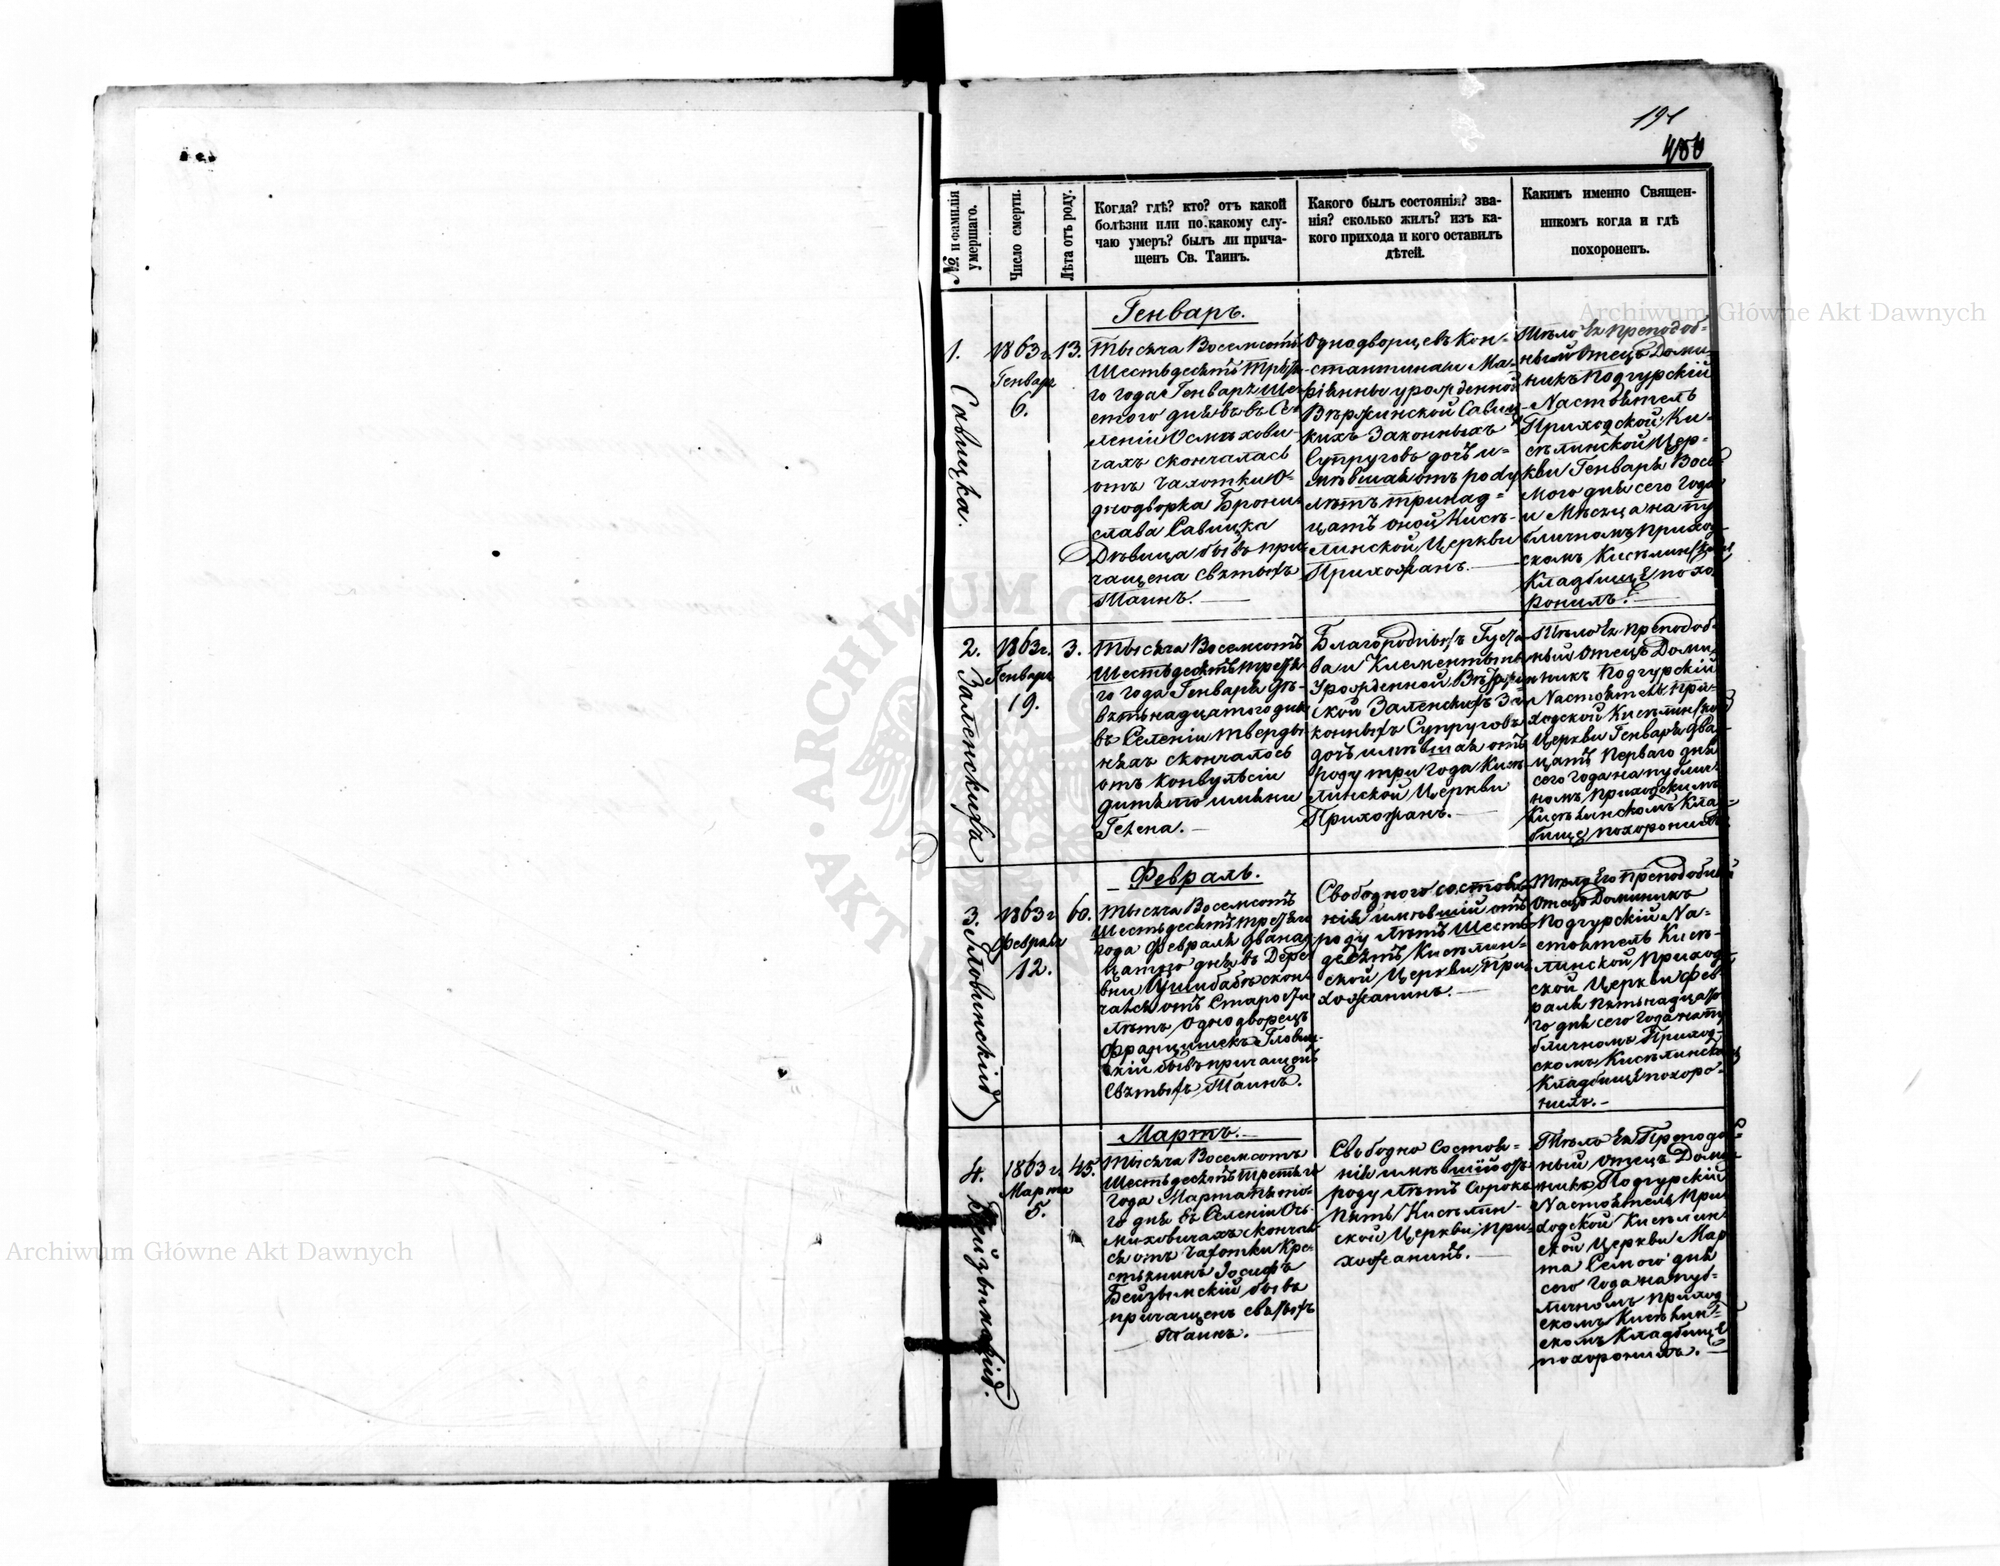 191
№ и фамилія умершаго.
Число смерти.
Лѣта отъ роду.
Когда? гдѣ? кто? отъ какой
болѣзни или по какому слу-
чаю умеръ? былъ ли прича-
щенъ Св. Таинъ.
Какого былъ состоянія? зва-
нія? сколько жилъ? изъ ка-
кого прихода и кого оставилъ
дѣтей.
Какимъ именно Священ-
никомъ когда и гдѣ
похороненъ.
Archiwum Główne Akt Dawnych
Генваръ.
1. Савицка.
1863 г.
Генваря
6.
13.
Тысяча Восемсотъ
Шестьдесятъ Третья-
го года Генваря Ше-
стого дня въ Се-
леніи Осмѣхови-
чахъ скончалась
отъ чахотки О-
днодворка Брони-
слава Савицка
Дѣвица бывъ при-
чащена Святыхъ
Таинъ.
Однодворцевъ Кон-
стантина и Ма-
ріянны урожденной
Вържинской Савиц-
кихъ Законныхъ
Супруговъ дочь и-
мѣвшая отъ роду
лѣтъ тринад-
цать оной Кисѣ-
линской Церкви
Прихожанъ.
Тѣло Ея Преподоб-
ный Отецъ Доми-
никъ Подгурскій
Настоятель
Приходской Ки-
сѣлинской Цер-
кви Генваря Вось-
мого дня сего Года
и Мѣсяца на пу-
бличномъ Приход-
скомъ Кисѣлинскомъ
Кладбищѣ похо-
ронилъ.
2. Заленскихъ
1863 г.
Генваря
19.
3.
Тысяча Восемсотъ
Шестьдесятъ третья-
го года Генваря Де-
вятьнадцатого дня
въ Селеніи Тверды-
няхъ скончалось
отъ конвульсіи
дитя по имяни
Гелена.
Благородныхъ Густа-
ва и Клементыны
Урожденной
ской Заленскихъ За-
конныхъ Супруговъ
дочь имѣвшая отъ
роду три года Кисѣ-
линской Церкви
Прихожанъ.
Тѣло Ея Преподоб-
ный Отецъ Доми-
никъ Подгурскій
Настоятель При-
ходской Кисѣлинской
Церкви Генваря Два-
цать Перваго дня
сего года на публич-
номъ Приходскимъ
Кисѣлинскомъ Клад-
бищѣ похоронилъ
Февралъ.
3. Гловинскій
1863 г.
Февраля
12.
60.
Тысяча Восемсотъ
Шестьдесятъ Третьяго
года Февраля дванад-
цатого дня въ Дере-
вни скон-
чался отъ Старости
лѣтъ Однодворецъ
Францишекъ Гловин-
скій бывъ причащенъ
Святыхъ Таинъ.
Свободного состоя-
нія имѣвшій отъ
роду лѣтъ Шесть-
десятъ Кисѣлин-
ской Церкви При-
хожанинъ.
Тѣло Его Преподобный
Отецъ Доминикъ
Подгурскій На-
стоятель Кисѣ-
линской Приход-
ской Церкви Фев-
раля Пятьнадцато-
го дня сего Года на пу-
бличномъ Приход-
скомъ Кисѣлинскомъ
Кладбищѣ похоро-
нилъ.
Мартъ.
4. Бейзымскій.
1863 г.
Марта
5.
45.
Тысяча Восемсотъ
Шестьдесятъ Третьяго
года Марта Пято-
го дня въ Селеніи Ос-
миховичахъ скончал-
ся отъ Чахотки Кре-
стьянинъ Іосифъ
Бейзымскій бывъ
причащенъ святыхъ
Таинъ.
Свободно Состоя-
нія имѣвшій отъ
роду лѣтъ Сорокъ
Пять Кисѣлин-
ской Церкви При-
хожанинъ.
Тѣло Ея Преподоб-
ный Отецъ Доми-
никъ Подгурскій
Настоятель При-
ходской Кисѣлин-
ской Церкви Мар-
та Семого дня
сего Года на пуб-
личномъ приход-
скомъ Кисѣлин-
скомъ Кладбищѣ
похоронилъ.
Archiwum Główne Akt Dawnych